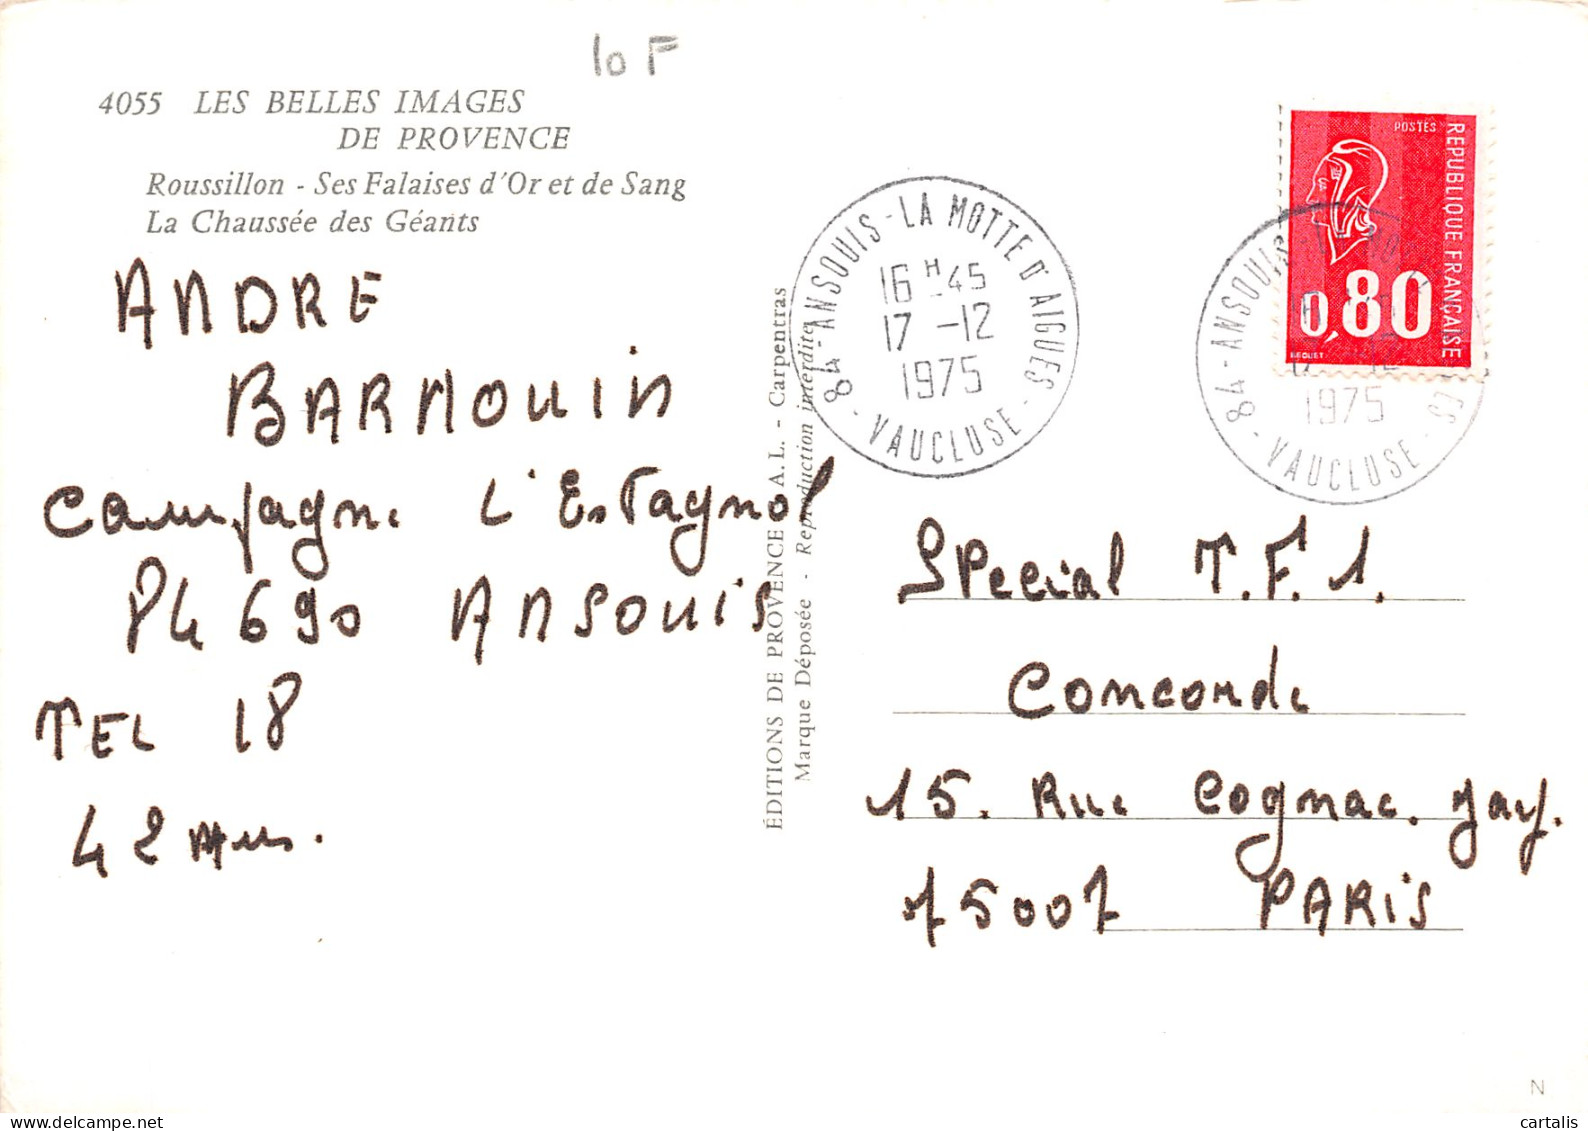 10 F
4055 LES BELLES IMAGES
DE PROVENCE
Roussillon - Ses Falaises d'Or et de Sang
La Chaussée des Géants
ANDRE
BARNOUIN
Campagne L'Estagnol
84690 ANSOUIS
TEL 18
42 Ans.
ÉDITIONS DE PROVENCE A.L. - Carpentras
Marque Déposée - Reproduction interdite
84 - ANSOUIS - LA MOTTE D'AIGUES - VAUCLUSE -
16 H 45
17 -12
1975
POSTES
REPUBLIQUE FRANÇAISE
0,80
BEQUET
84 - ANSOUIS
1975
- VAUCLUSE -
Special T.F.1.
Concorde
15. Rue Cognac. Jay.
75007 PARIS
N
cartalis
delcampe.net